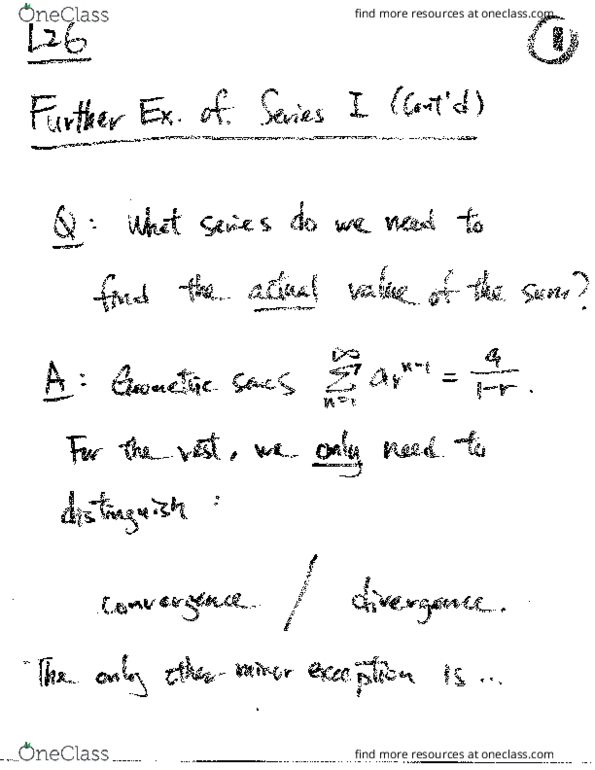 OneClass
find more resources at oneclass.com
L26
1
Further Ex. of. Series I (Cont'd)
Q : What series do we need to
find the actual value of the sum?
A : Geometric series ∑_{n=1}^{∞} ar^{n-1} = a/(1-r).
For the rest, we only need to
distinguish :
convergence / divergence.
The only other minor exception is ...
OneClass
find more resources at oneclass.com